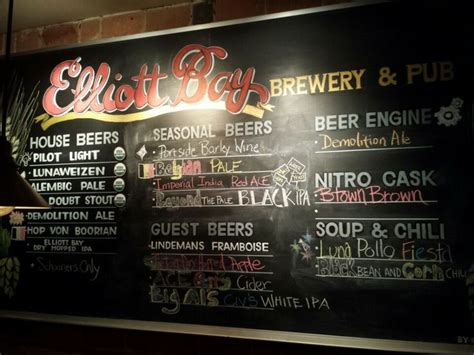 Elliott Bay
BREWERY & PUB
HOUSE BEERS
PILOT LIGHT
LUNAWEIZEN
ALEMBIC PALE
NO DOUBT STOUT
DEMOLITION ALE
HOP VON BOORIAN
ELLIOTT BAY
DRY HOPPED IPA
Schooners Only
SEASONAL BEERS
Portside Barley Wine
Belgian PALE
Imperial India Red ALE
Beyond The PALE BLACK IPA
GUEST BEERS
LINDEMANS FRAMBOISE
Apple
ACE Cider
Big Al's White IPA
BEER ENGINE
Demolition Ale
NITRO CASK
Brown Brown
SOUP & CHILI
Luna Pollo Fiesta
Black BEAN AND Corn Chili